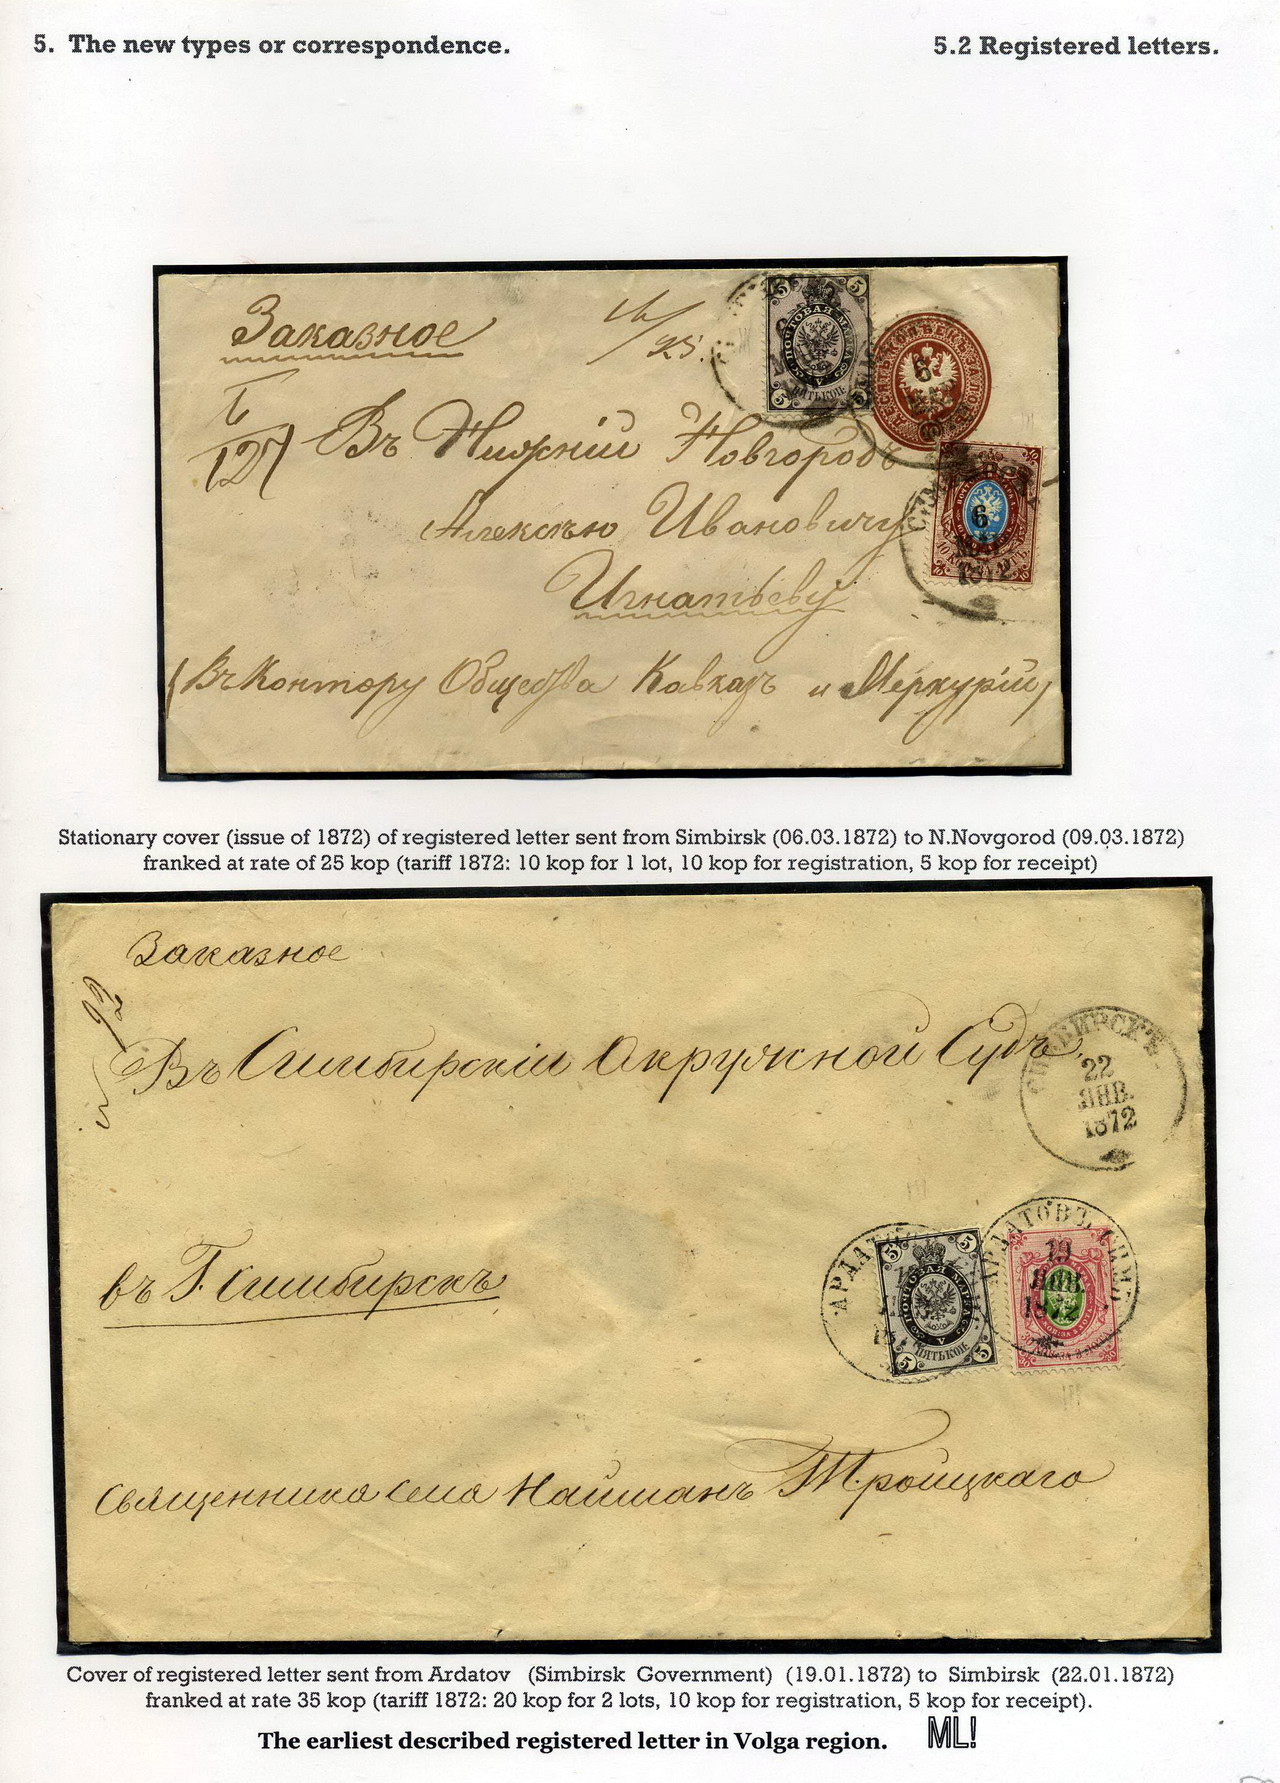 5. The new types or correspondence.
5.2 Registered letters.
Заказное
25.
127
Въ Нижній Новгородъ
Алексѣю Ивановичу
Игнатьеву
(Въ Контору Общества Кавказъ и Меркурій)
5 5
ПОЧТОВАЯ МАРКА
V
ПЯТЬ КОП.
6
МАР.
1872
Stationary cover (issue of 1872) of registered letter sent from Simbirsk (06.03.1872) to N.Novgorod (09.03.1872)
franked at rate of 25 kop (tariff 1872: 10 kop for 1 lot, 10 kop for registration, 5 kop for receipt)
Заказное
92
Въ Симбирскій Окружной Судъ
СИМБИРСКЪ
22
ЯНВ.
1872
въ Г. Симбирскъ
5 5
ПОЧТОВАЯ МАРКА
V
ПЯТЬ КОП.
5 5
АРДАТОВЪ СИМ.
19
ЯНВ.
1872
Священника села Найманъ Троицкаго
Cover of registered letter sent from Ardatov (Simbirsk Government) (19.01.1872) to Simbirsk (22.01.1872)
franked at rate 35 kop (tariff 1872: 20 kop for 2 lots, 10 kop for registration, 5 kop for receipt).
The earliest described registered letter in Volga region. ML!